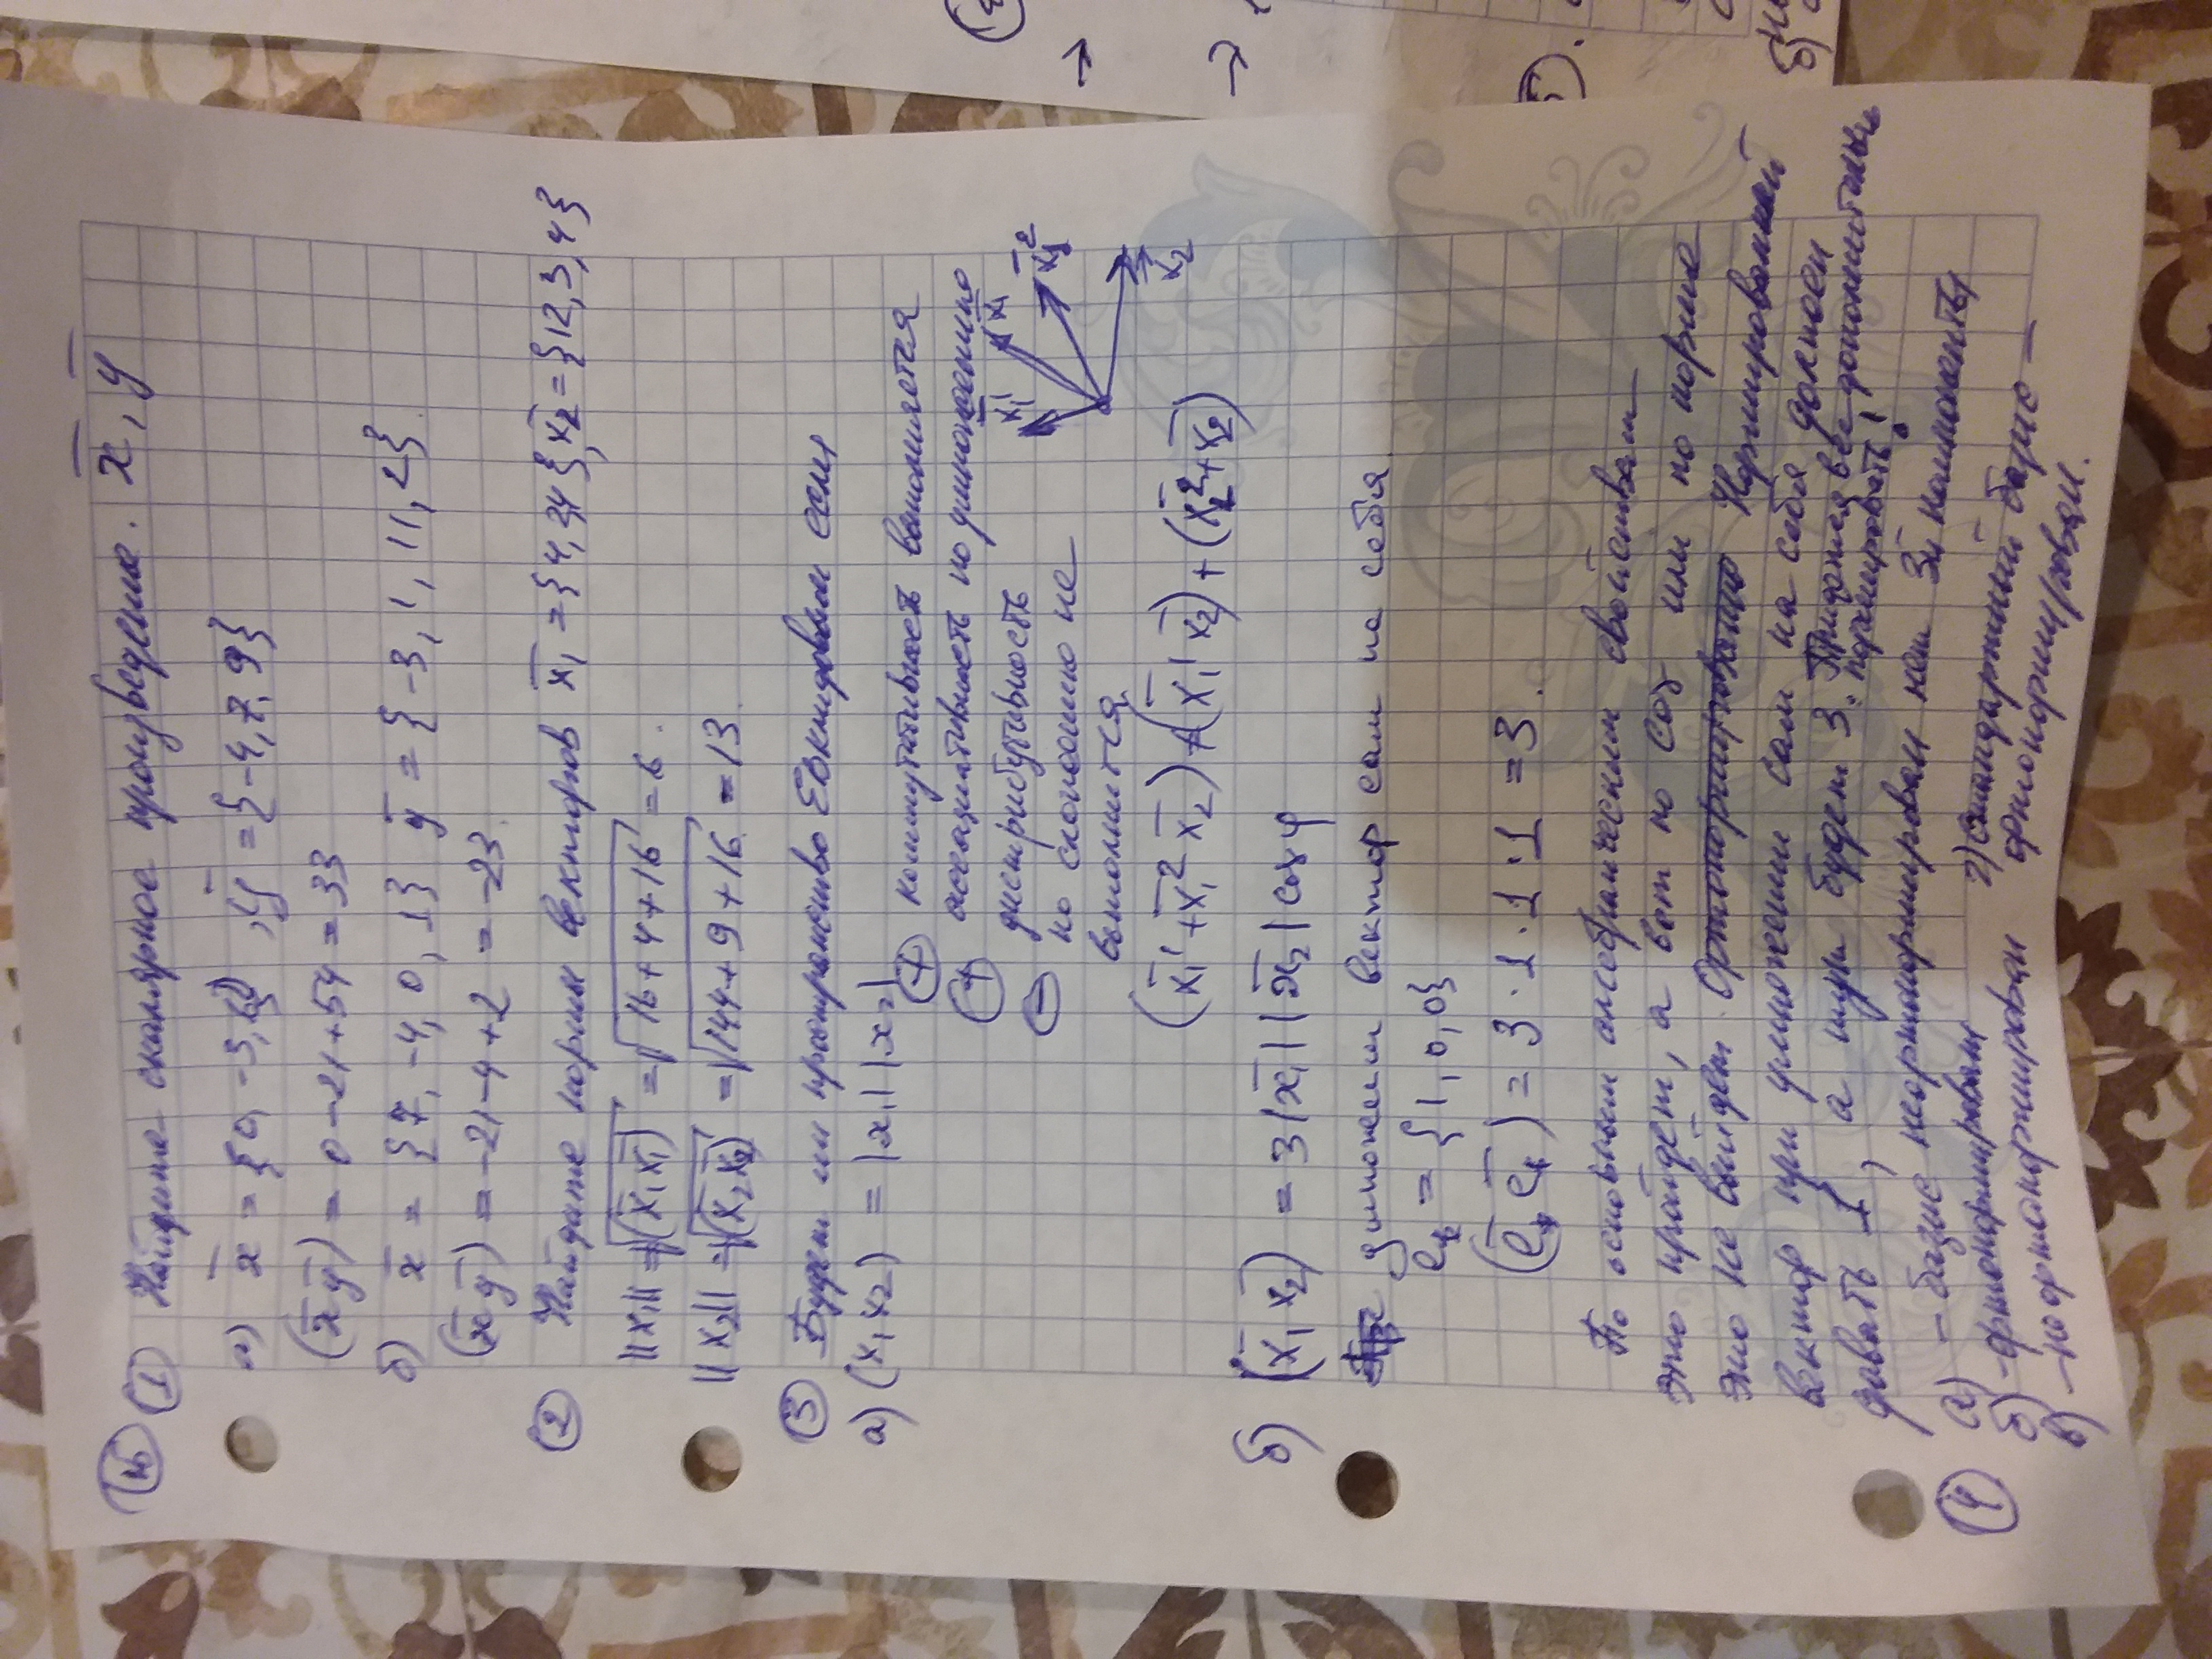 № ① Найдите скалярное произведение. x̄, ȳ
а) x̄ = {0, -3, 6}, ȳ = {-4, 7, 9}
(x̄ȳ) = 0 - 21 + 54 = 33
б) x̄ = {7, -4, 0, 1} ȳ = {-3, 1, 11, 2}.
(x̄ȳ) = -21 - 4 + 2 = -23.
② Найдите нормы векторов x̄₁ = {4, 2, 4}, x̄₂ = {12, 3, 4}
||x₁|| = √(x̄₁x̄₁) = √16+4+16 = 6.
||x₂|| = √(x̄₂x̄₂) = √144+9+16 = 13.
③ Будет ли пространство Евклидовым если
а) (x₁x₂) = |x₁||x₂|
⊕ коммутативность выполняется
⊕ ассоциативность по умножению
⊖ дистрибутивность
по сложению не
выполняется.
x̄₁¹ x̄₁ x̄₁² x̄₂
(x̄₁¹ + x̄₁² x̄₂) ≠ (x̄₁¹ x̄₂) + (x̄₁² + x̄₂)
б) (x̄₁x̄₂) = 3|x̄₁||x̄₂| cos φ
умножаем вектор сам на себя.
eₓ = {1, 0, 0}
(ēₓ ēₓ) = 3·1·1·1 = 3.
По основным аксиоматическим свойствам
это пройдет, а вот по cos или по норме
это не выйдет. Нормированный
вектор при умножении сам на себя должен
давать 1, а тут будет 3. Придётся все дополнительно
нормировать.
④ а) - базис неортонормирован нет 3й компоненты
б) - ортонормирован 2) стандартный базис -
в) - не ортонормирован ортонормирован.